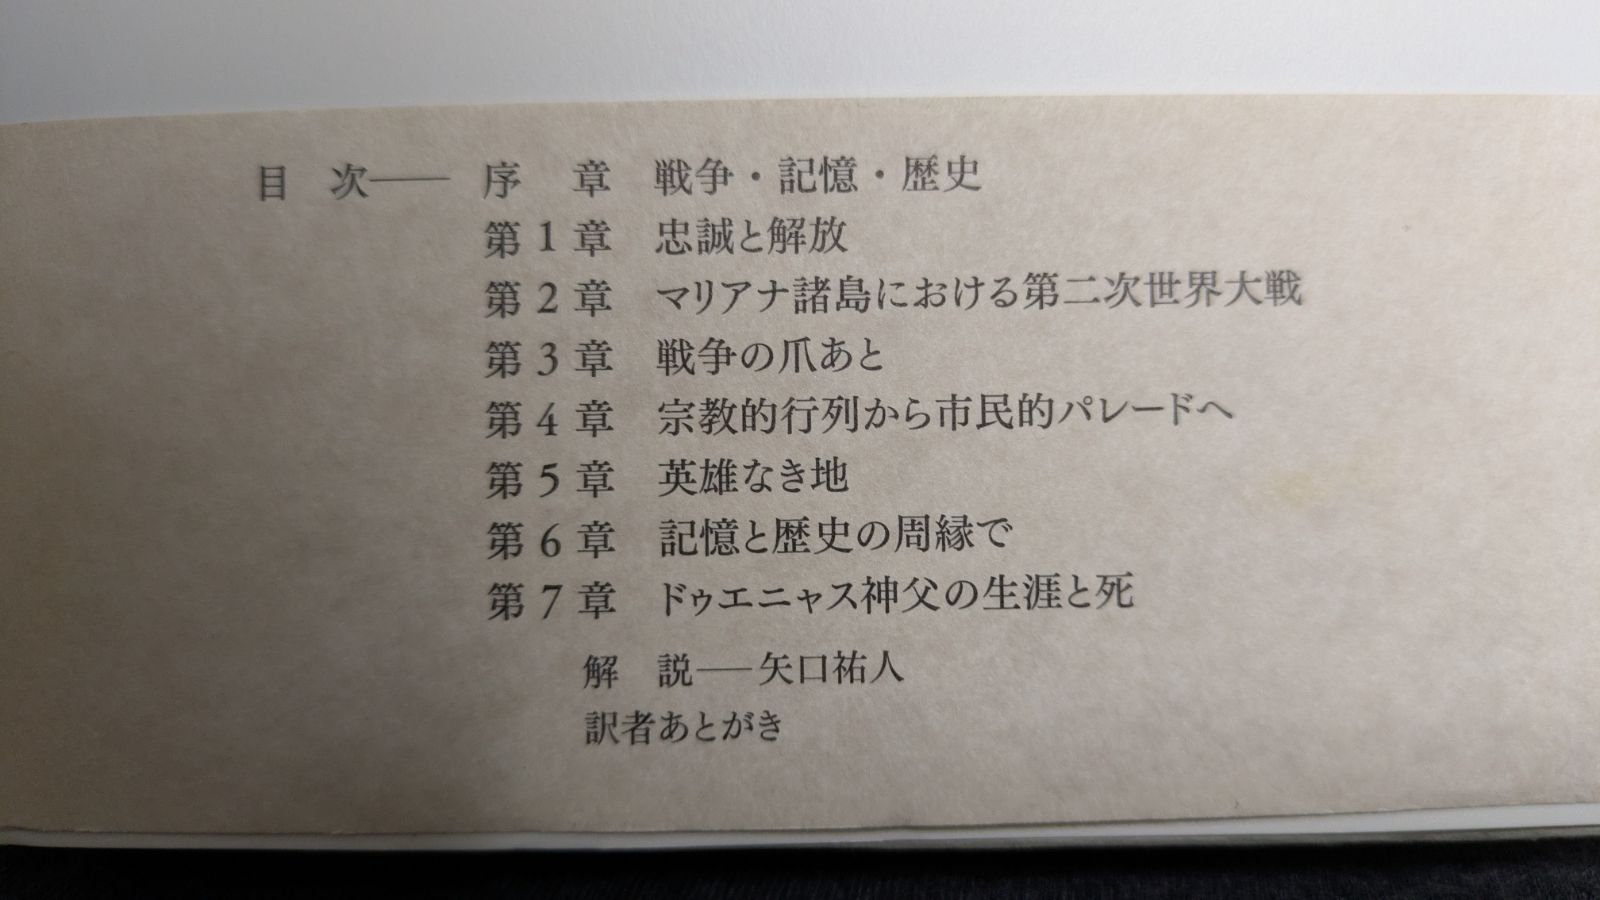 目　次── 序　章　戦争・記憶・歴史
第1章　忠誠と解放
第2章　マリアナ諸島における第二次世界大戦
第3章　戦争の爪あと
第4章　宗教的行列から市民的パレードへ
第5章　英雄なき地
第6章　記憶と歴史の周縁で
第7章　ドゥエニャス神父の生涯と死
解　説──矢口祐人
訳者あとがき